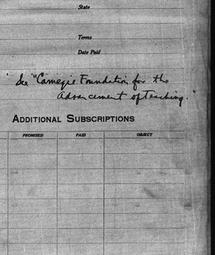 State
Terms
Date Paid
" See "Carnegie Foundation for the
Advancement of Teaching."
ADDITIONAL SUBSCRIPTIONS
PROMISED PAID OBJECT